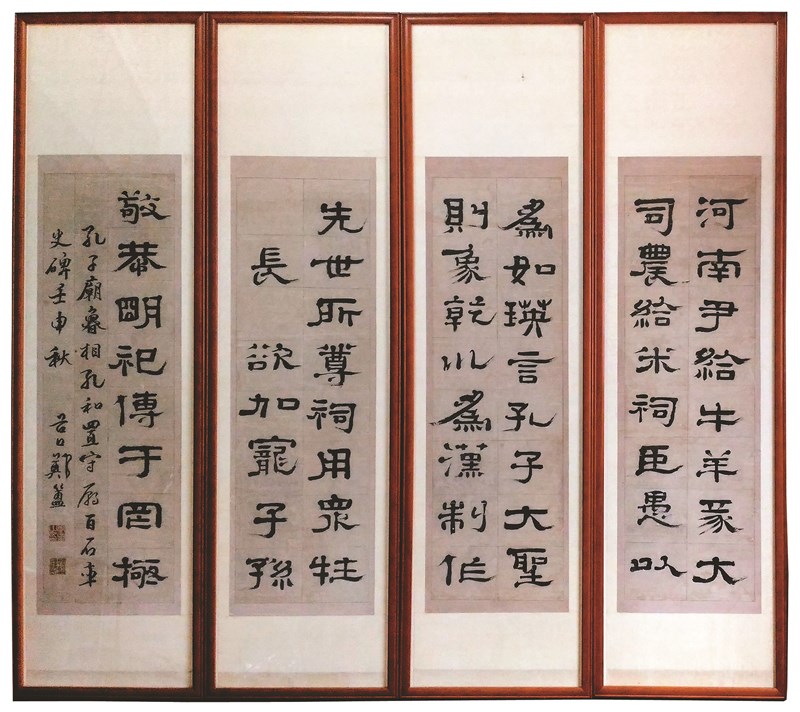 河南尹給牛羊豕大
司農給米祠臣愚以
爲如瑛言孔子大聖
則象乾川爲漢制作
先世所尊祠用眾牲
長 欲加寵子孫
敬恭明祀傳于罔極
孔子廟魯相孔和置守廟百石卒
史碑壬申秋 谷口鄭簠